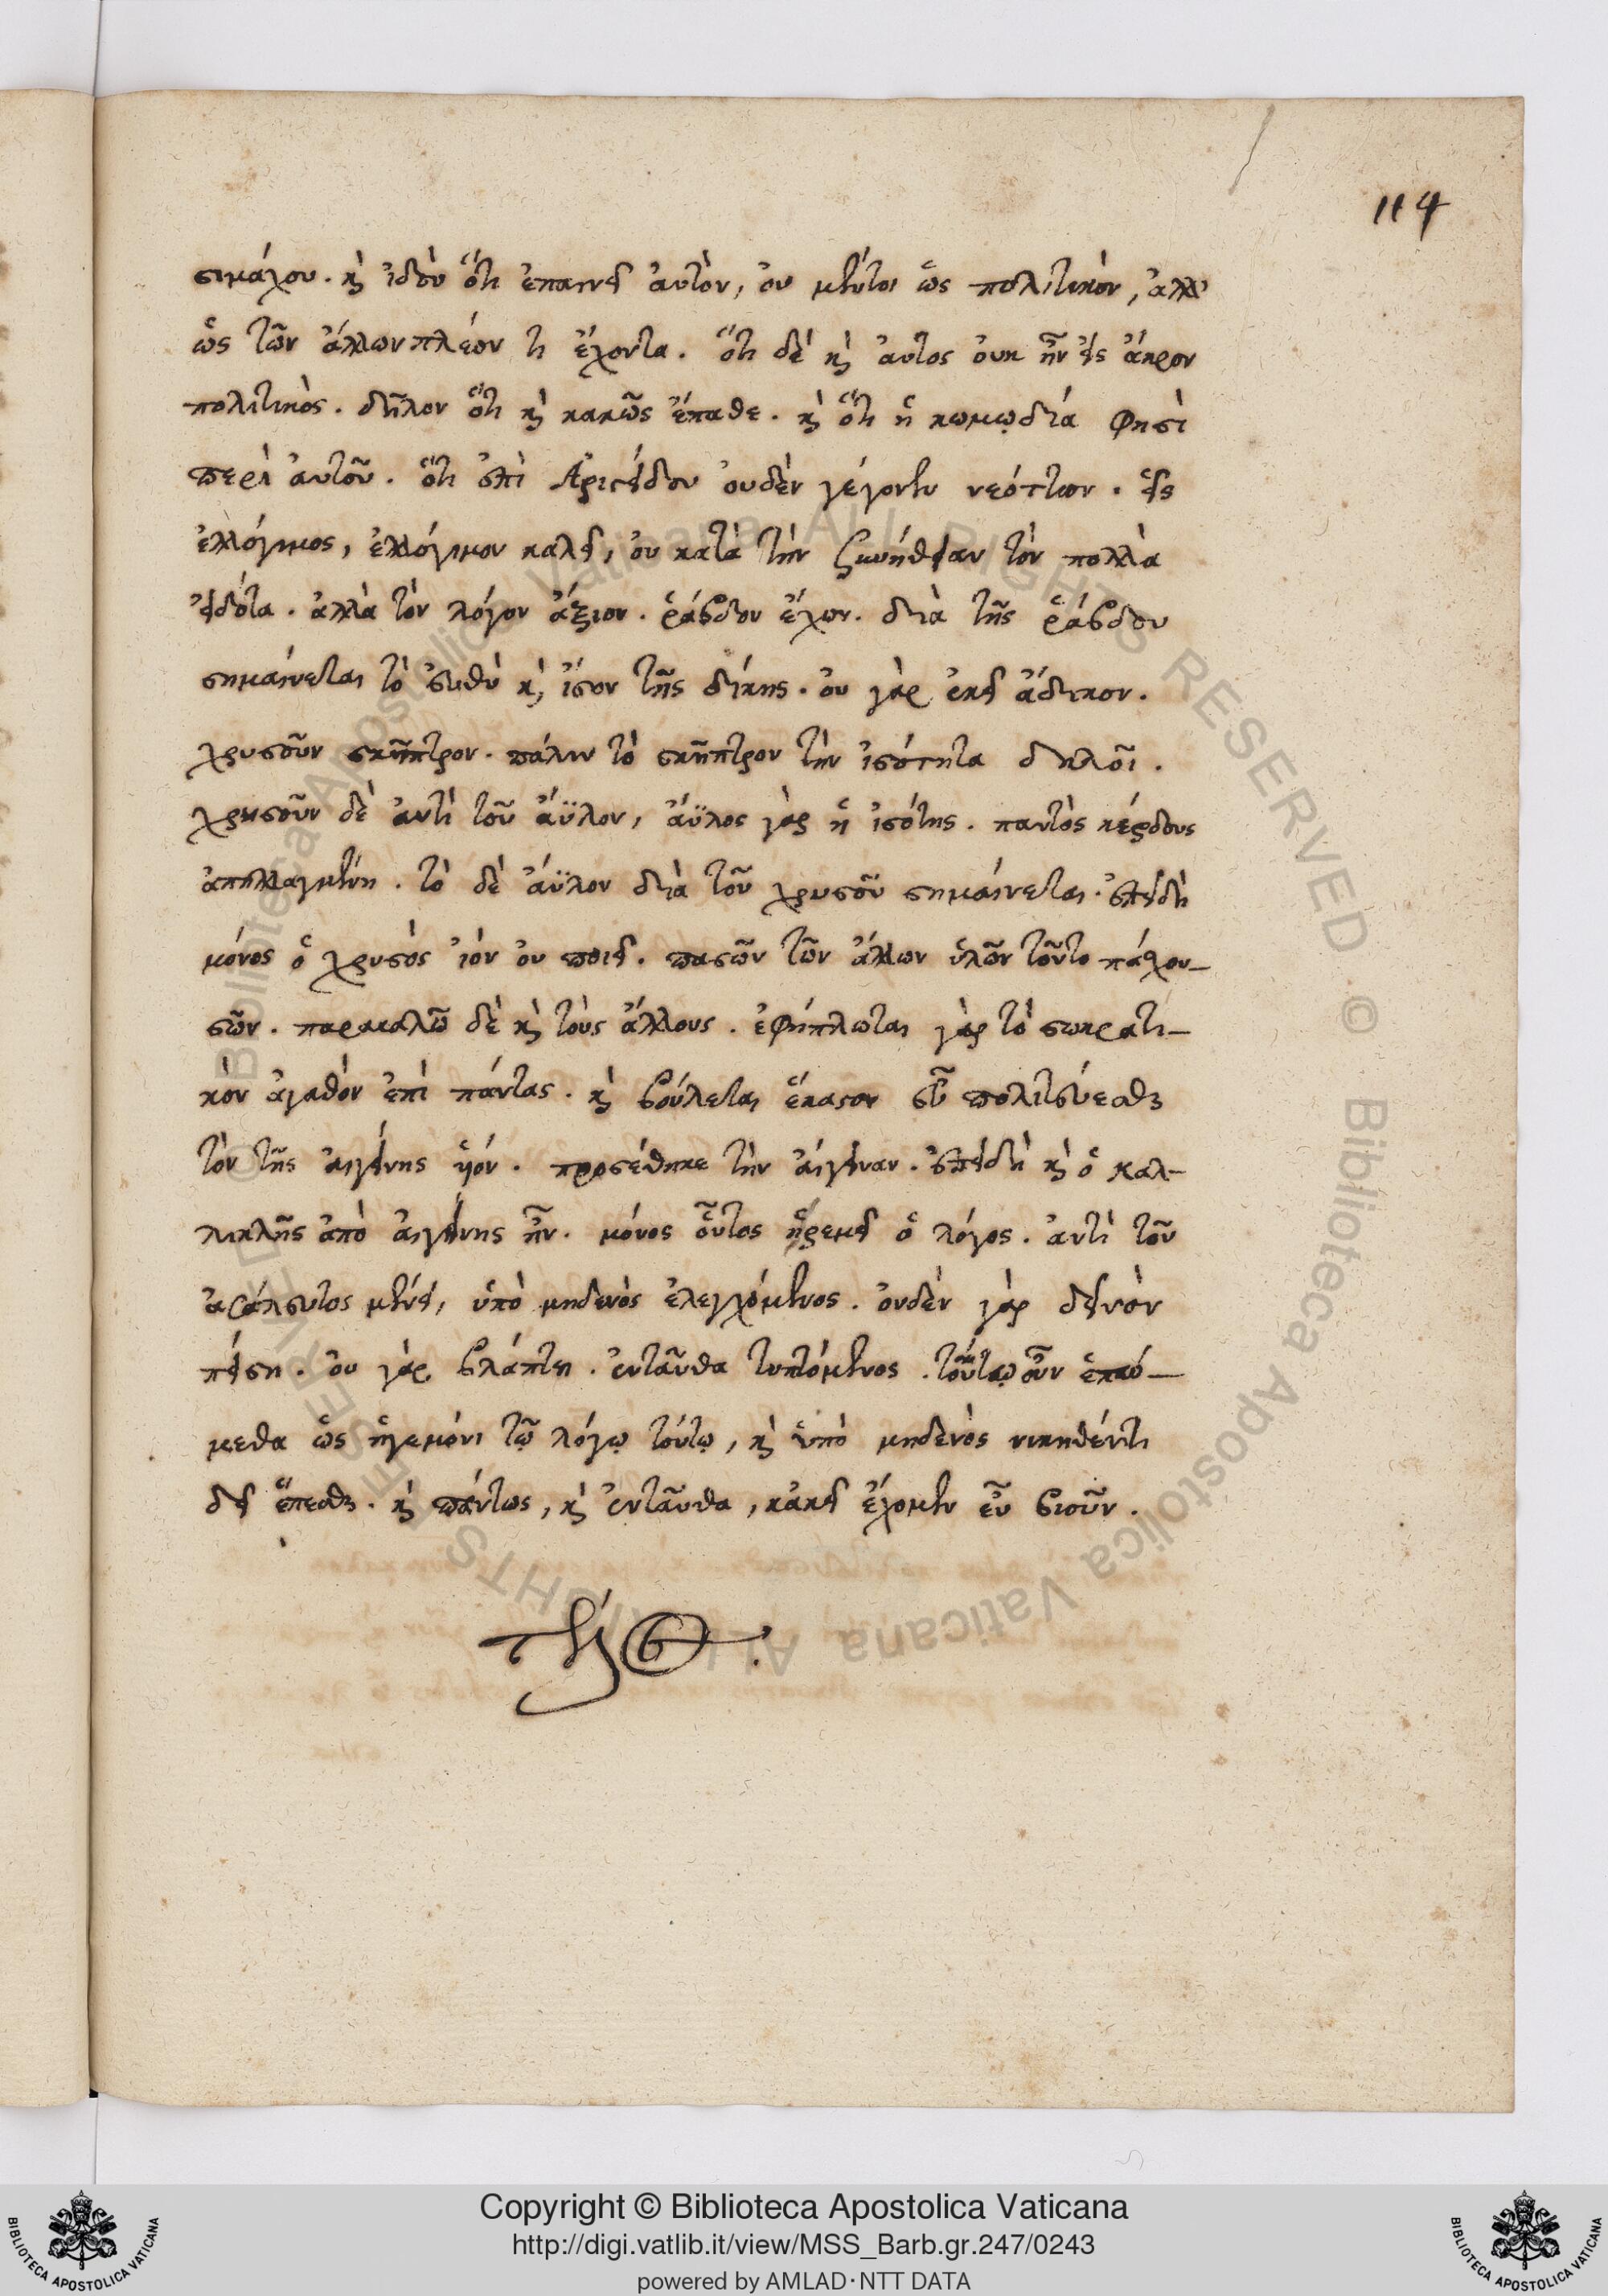 114
σιμάχου. κὶ ἰδοὺ ὅτι ἐπαινεῖ ἀυτὸν, ὀυ μέντοι ὡς πολιτικὸν, ἀλλ'
ὡς τῶν ἄλλων πλέον τι ἔχοντα. ὅτι δὲ κὶ ἀυτος ὀυκ ἦν εἰς ἄκρον
πολιτικὸς. δῆλον ὅτι κὶ κακῶς ἔπαθε. κὶ ὅτι ἡ κωμῳδία φησὶ
περὶ ἀυτοῦ. ὅτι ἐπὶ Ἀριστείδου ὀυδὲν γέγονεν νεότερον. εἷς
ἐλλόγιμος, ἐλλόγιμον καλεῖ, ὀυ κατὰ τὴν συνήθειαν τὸν πολλὰ
εἰδότα. ἀλλὰ τὸν λόγου ἄξιον. ῥάβδον ἔχων. διὰ τῆς ῥάβδου
σημαίνεται τὸ ἐυθὺ κὶ ἴσον τῆς δίκης. ὀυ γὰρ ἐκεῖ ἄδικον.
χρυσοῦν σκῆπτρον. πάλιν τὸ σκῆπτρον τὴν ἰσότητα δηλοῖ.
χρυσοῦν δὲ ἀντὶ τοῦ ἄϋλον, ἄϋλος γὰρ ἡ ἰσότης. παντὸς κέρδους
ἀπηλλαγμένη. τὸ δὲ ἄϋλον διὰ τοῦ χρυσοῦ σημαίνεται. ἐπειδὴ
μόνος ὁ χρυσὸς ἰὸν ὀυ ποιεῖ. πασῶν τῶν ἄλλων ὑλῶν τοῦτο πάχου-
σῶν. παρακαλῶ δὲ κὶ τοὺς ἄλλους. ἐφήπλωται γὰρ τὸ σωκρατι-
κὸν ἀγαθὸν ἐπὶ πάντας. κὶ βούλεται ἕκαστον εὖ πολιτεύεσθαι
τὸν τῆς ἀιγίνης ὑόν. προσέθηκε τὴν ἀίγιναν. ἐπειδὴ κὶ ὁ καλ-
λικλῆς ἀπὸ ἀιγίνης ἦν. μόνος οὗτος ἠρεμεῖ ὁ λόγος. ἀντὶ τοῦ
ἀσάλευτος μένει, ὑπὸ μηδενὸς ἐλεγχόμενος. ὀυδὲν γὰρ δεινὸν
πείσῃ. ὀυ γὰρ βλάπτῃ. ἐνταῦθα τυπτόμενος. τούτῳ οὖν ἑπώ-
μεθα ὡς ἡγεμόνι τῷ λόγῳ τούτῳ, κὶ ὑπὸ μηδενὸς νικηθέντι
δεῖ ἕπεσθαι. κὶ πάντως, κὶ ἐνταῦθα, κἀκεῖ ἔχομεν εὖ βιοῦν.
τέλος.
Copyright © Biblioteca Apostolica Vaticana
http://digi.vatlib.it/view/MSS_Barb.gr.247/0243
powered by AMLAD·NTT DATA